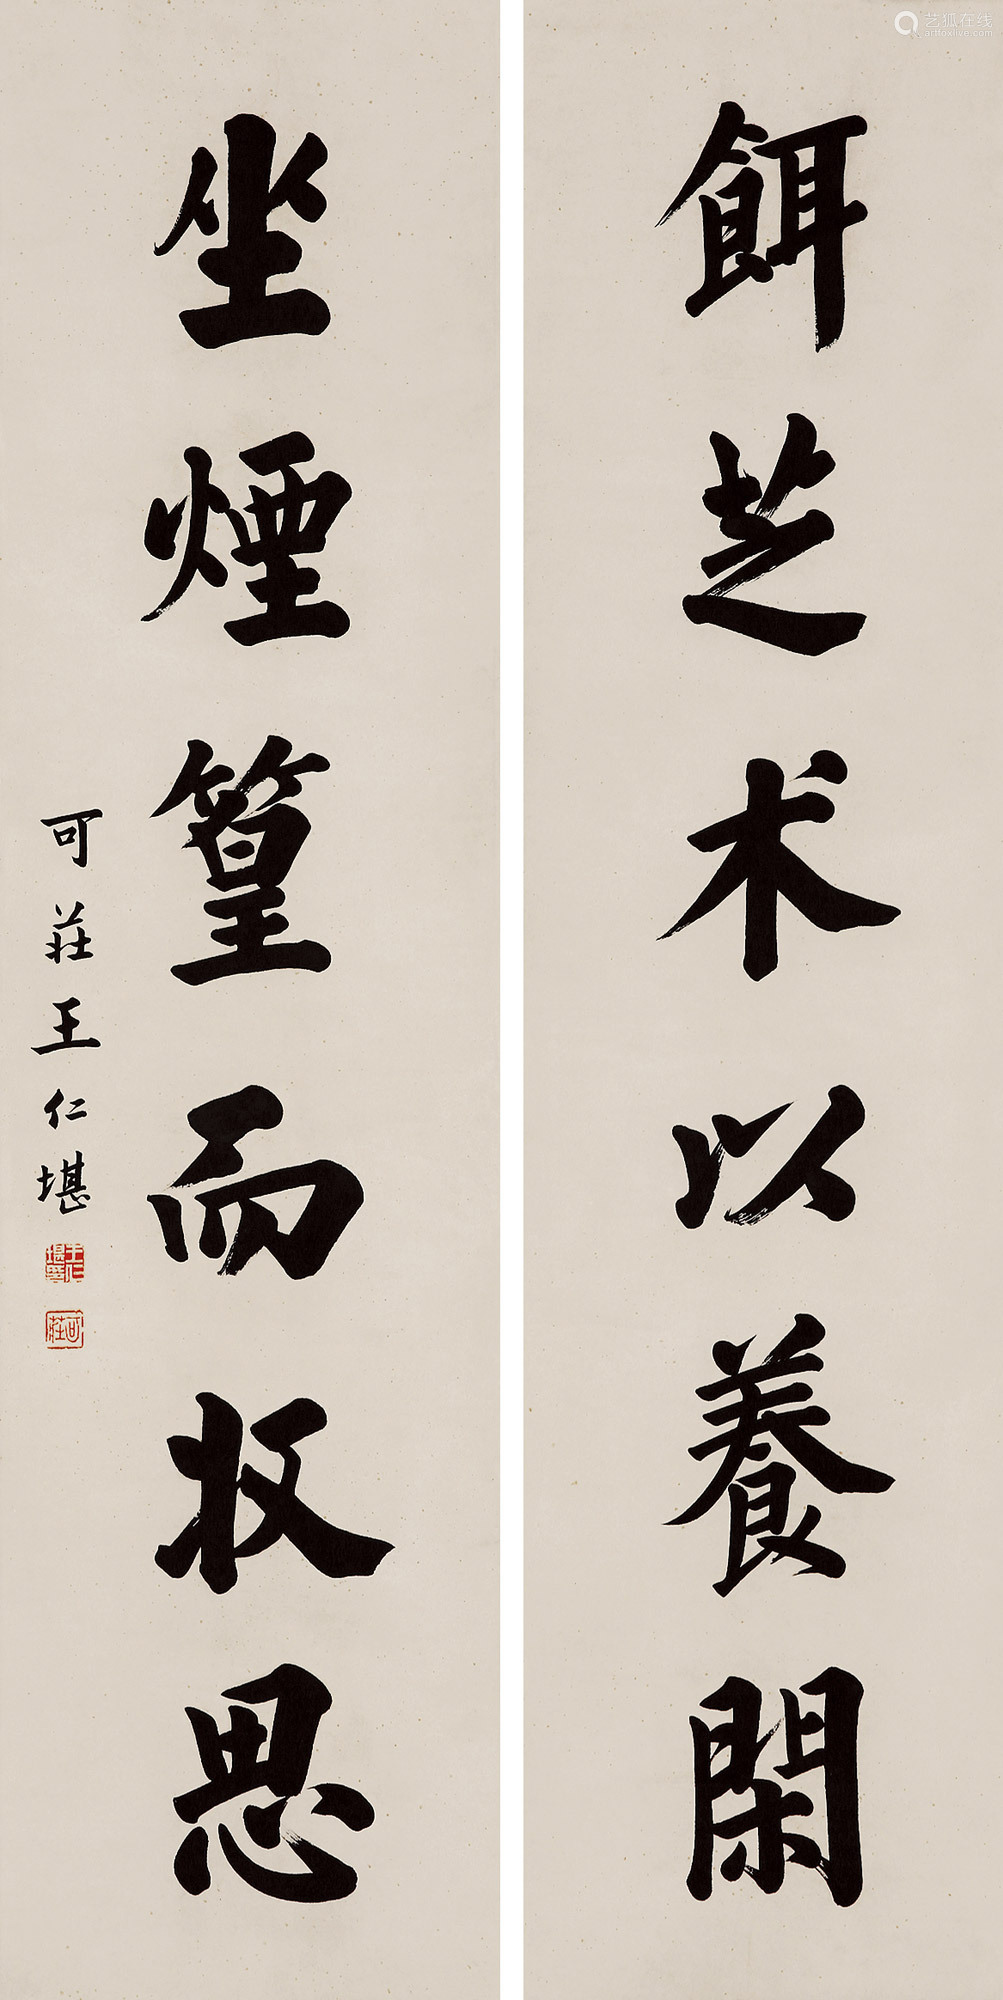 餌芝术以養閑
坐煙篁而收思
可莊王仁堪
王仁堪璽
可莊
艺狐在线
artfoxlive.com